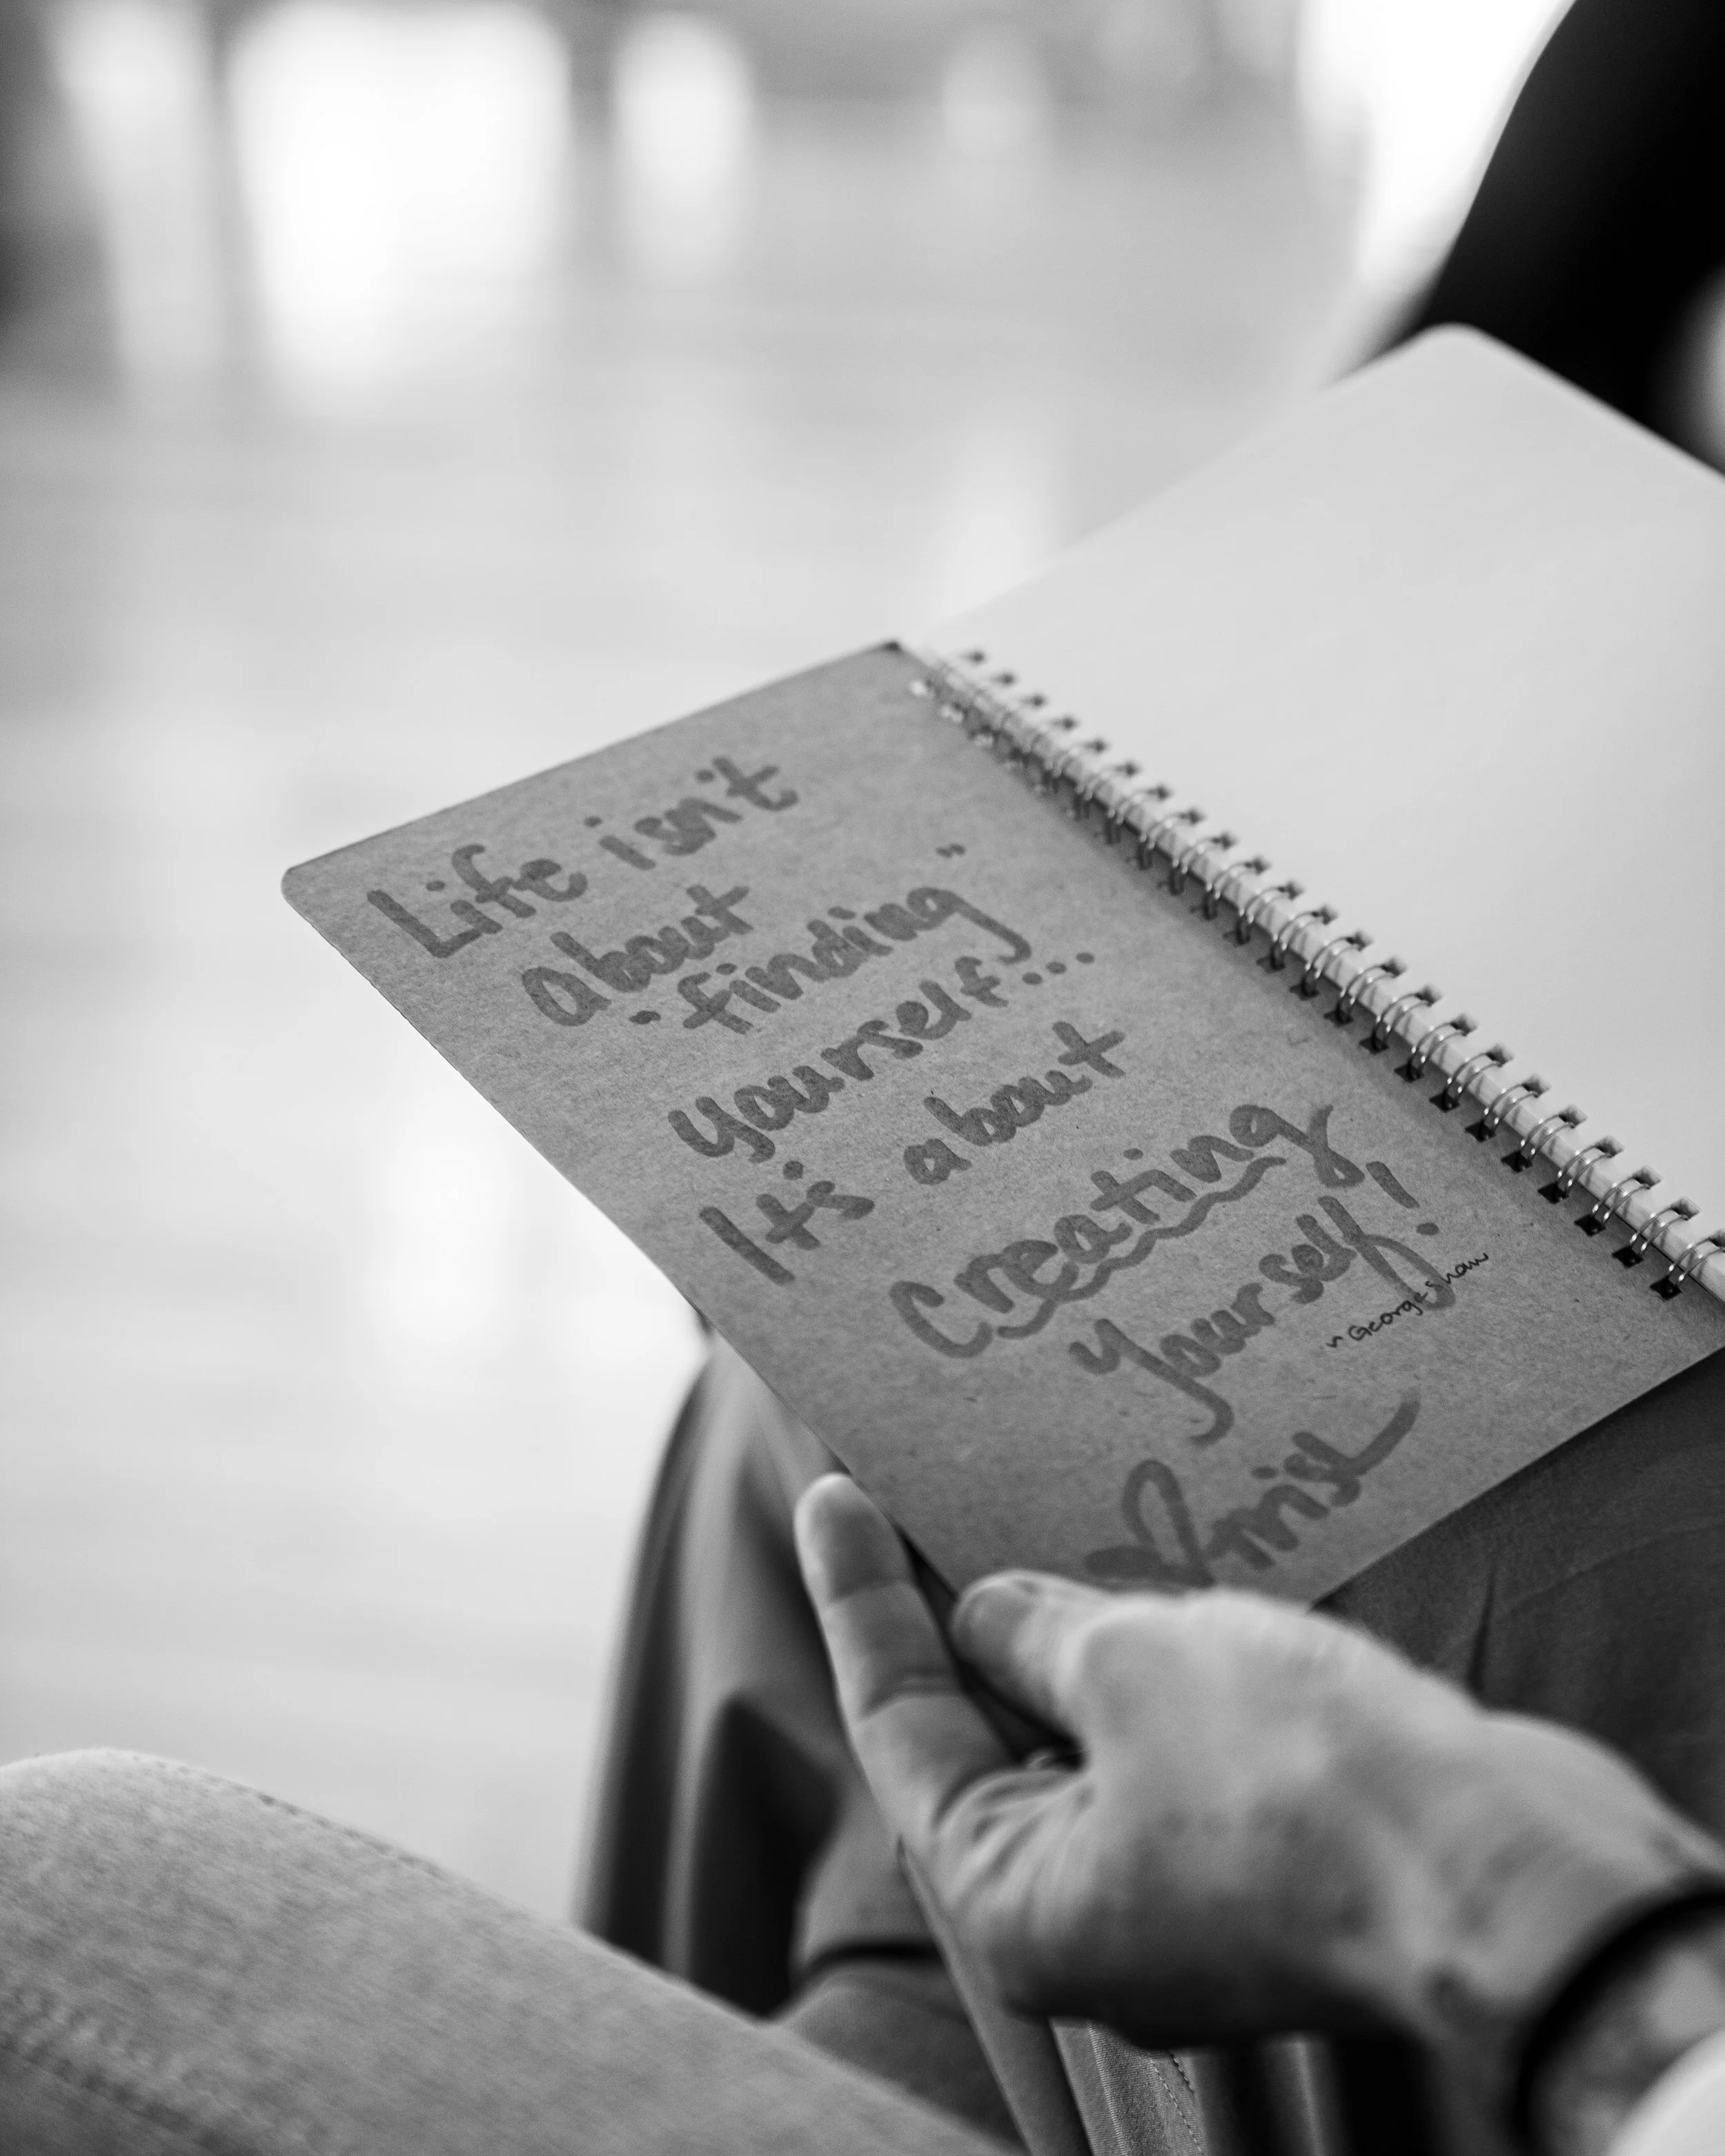 Life isn't
about
"finding"
yourself...
It's about
Creating
Yourself!
~ George Shaw